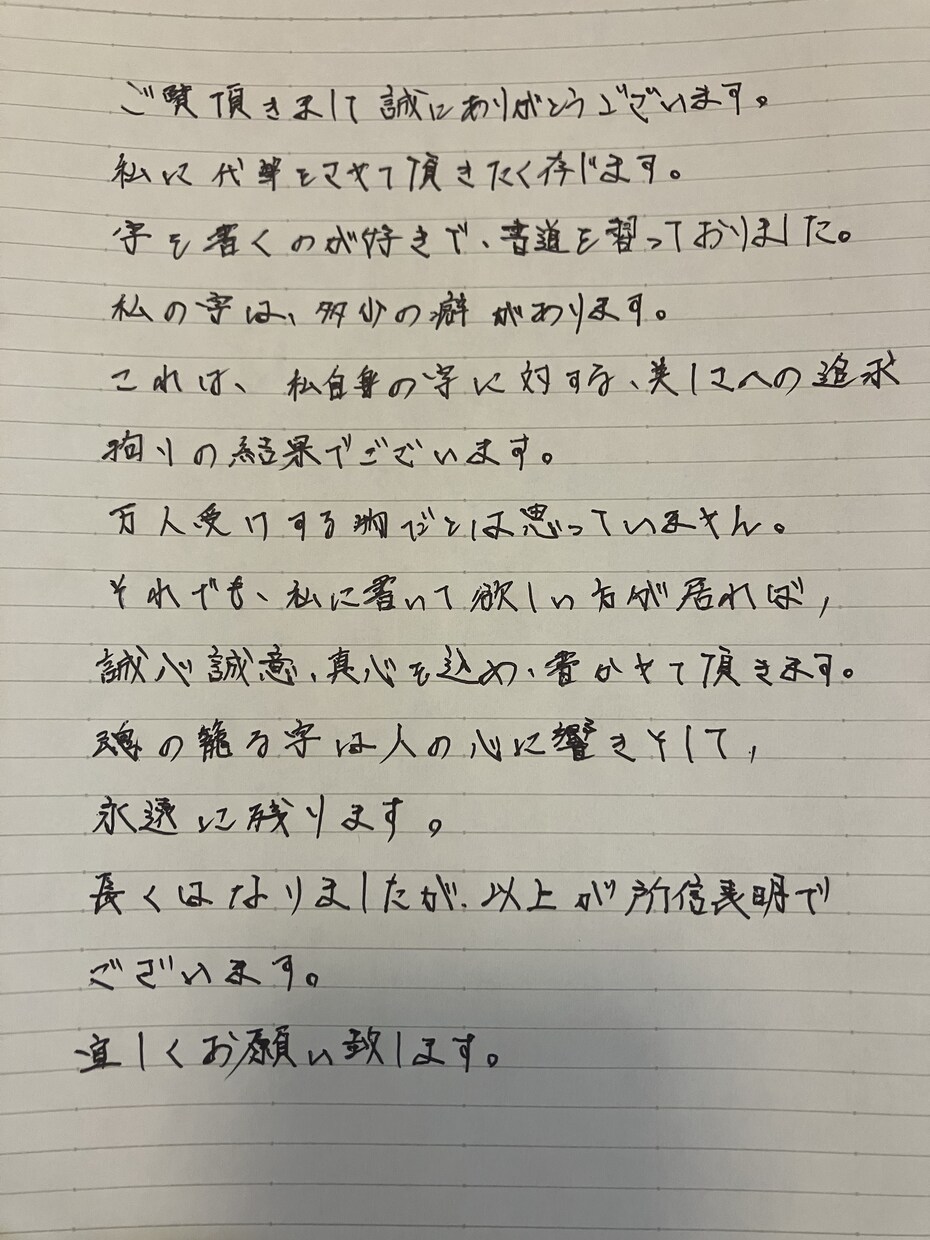 ご覧頂きまして誠にありがとうございます。
私に代筆をさせて頂きたく存じます。
字を書くのが好きで、書道を習っておりました。
私の字は、多少の癖があります。
これは、私自身の字に対する、美しさへの追求
拘りの結果でございます。
万人受けする物だとは思っていません。
それでも、私に書いて欲しい方が居れば、
誠心誠意、真心を込め、書かせて頂きます。
魂の籠る字は人の心に響きそして、
永遠に残ります。
長くはなりましたが、以上が所信表明で
ございます。
宜しくお願い致します。